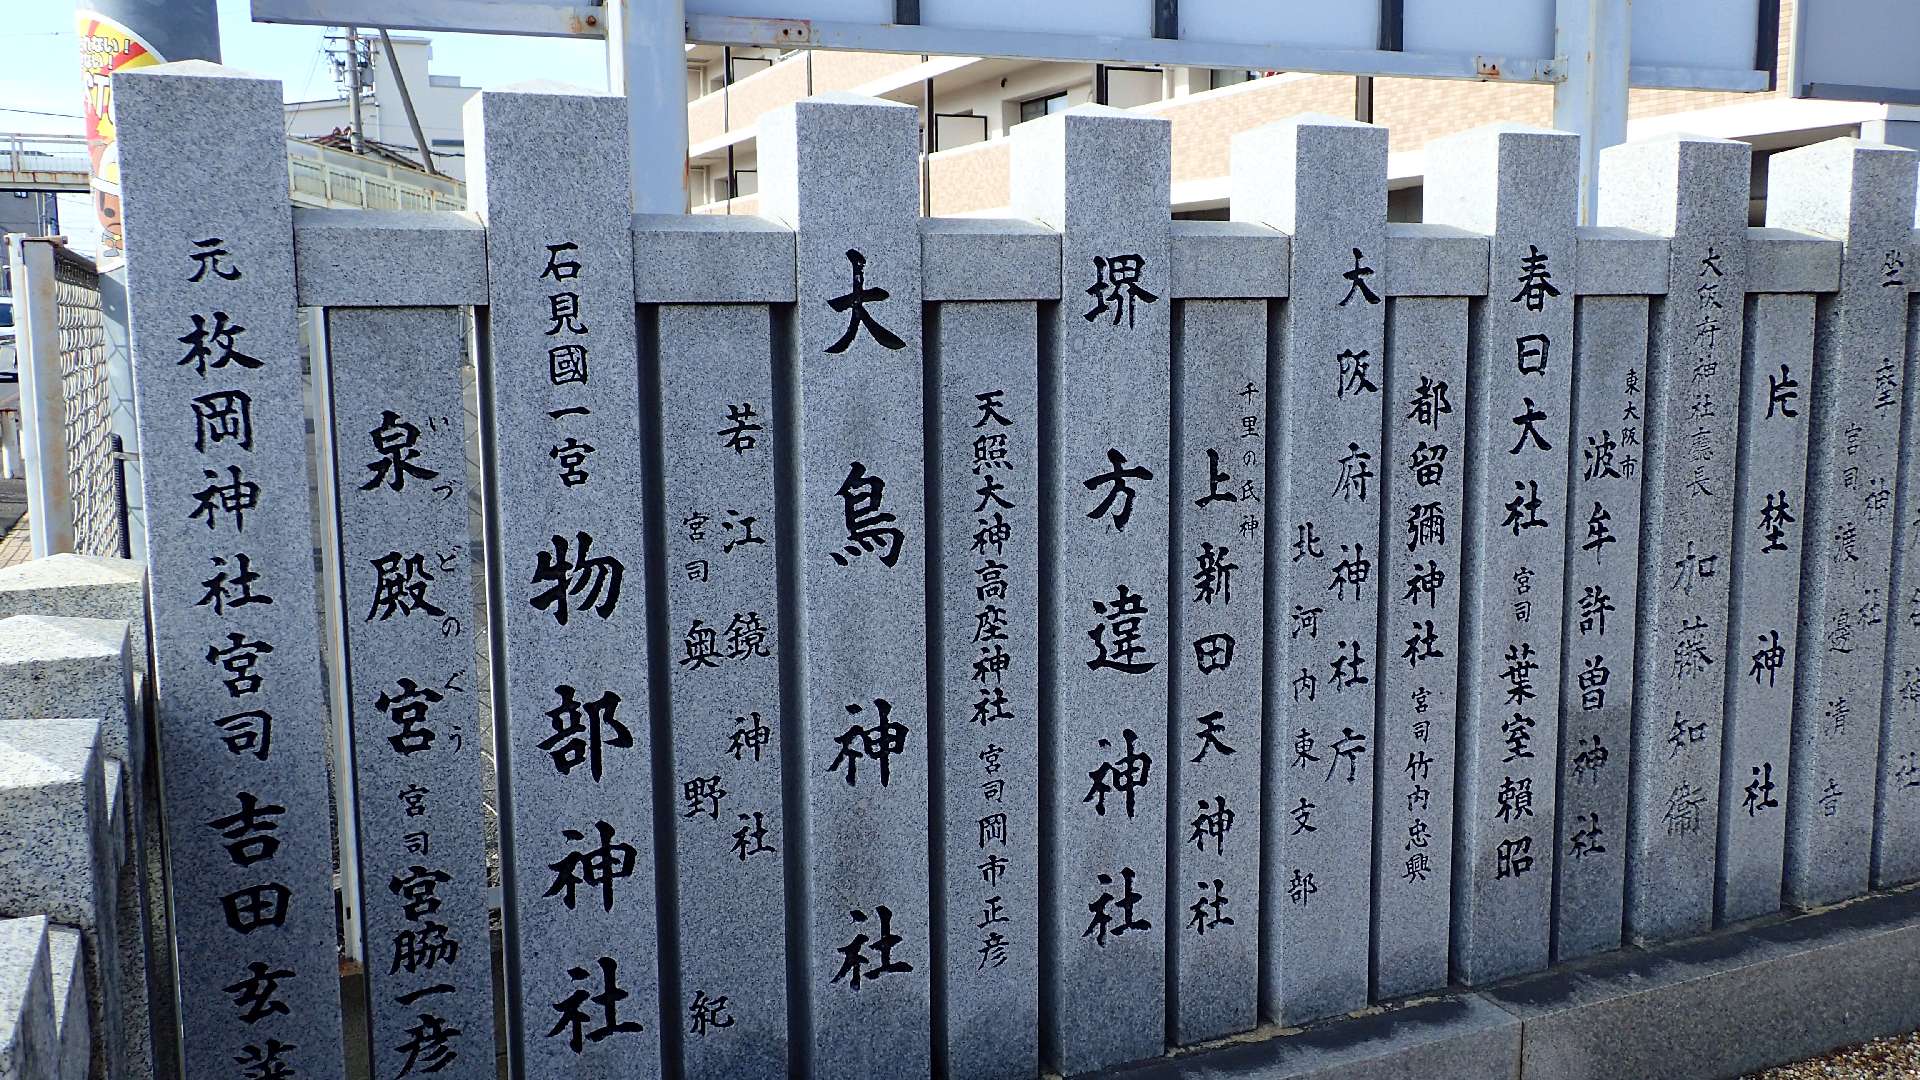 坐
摩
神
社
宮司 渡邊清音
片埜神社
大阪府神社廳長 加藤知衞
東大阪市
波牟許曽神社
春日大社 宮司 葉室頼昭
都留彌神社 宮司 竹内忠興
大阪府神社庁
北河内東支部
千里の氏神
上新田天神社
堺方違神社
天照大神高座神社 宮司 岡市正彦
大鳥神社
若江鏡神社
宮司 奥野 紀
石見國一宮 物部神社
泉殿宮 宮司 宮脇一彦
いづどのぐう
元枚岡神社宮司 吉田玄